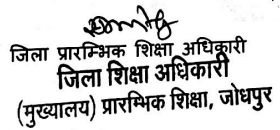 जिला प्रारम्भिक शिक्षा अधिकारी
जिला शिक्षा अधिकारी
(मुख्यालय) प्रारम्भिक शिक्षा, जोधपुर